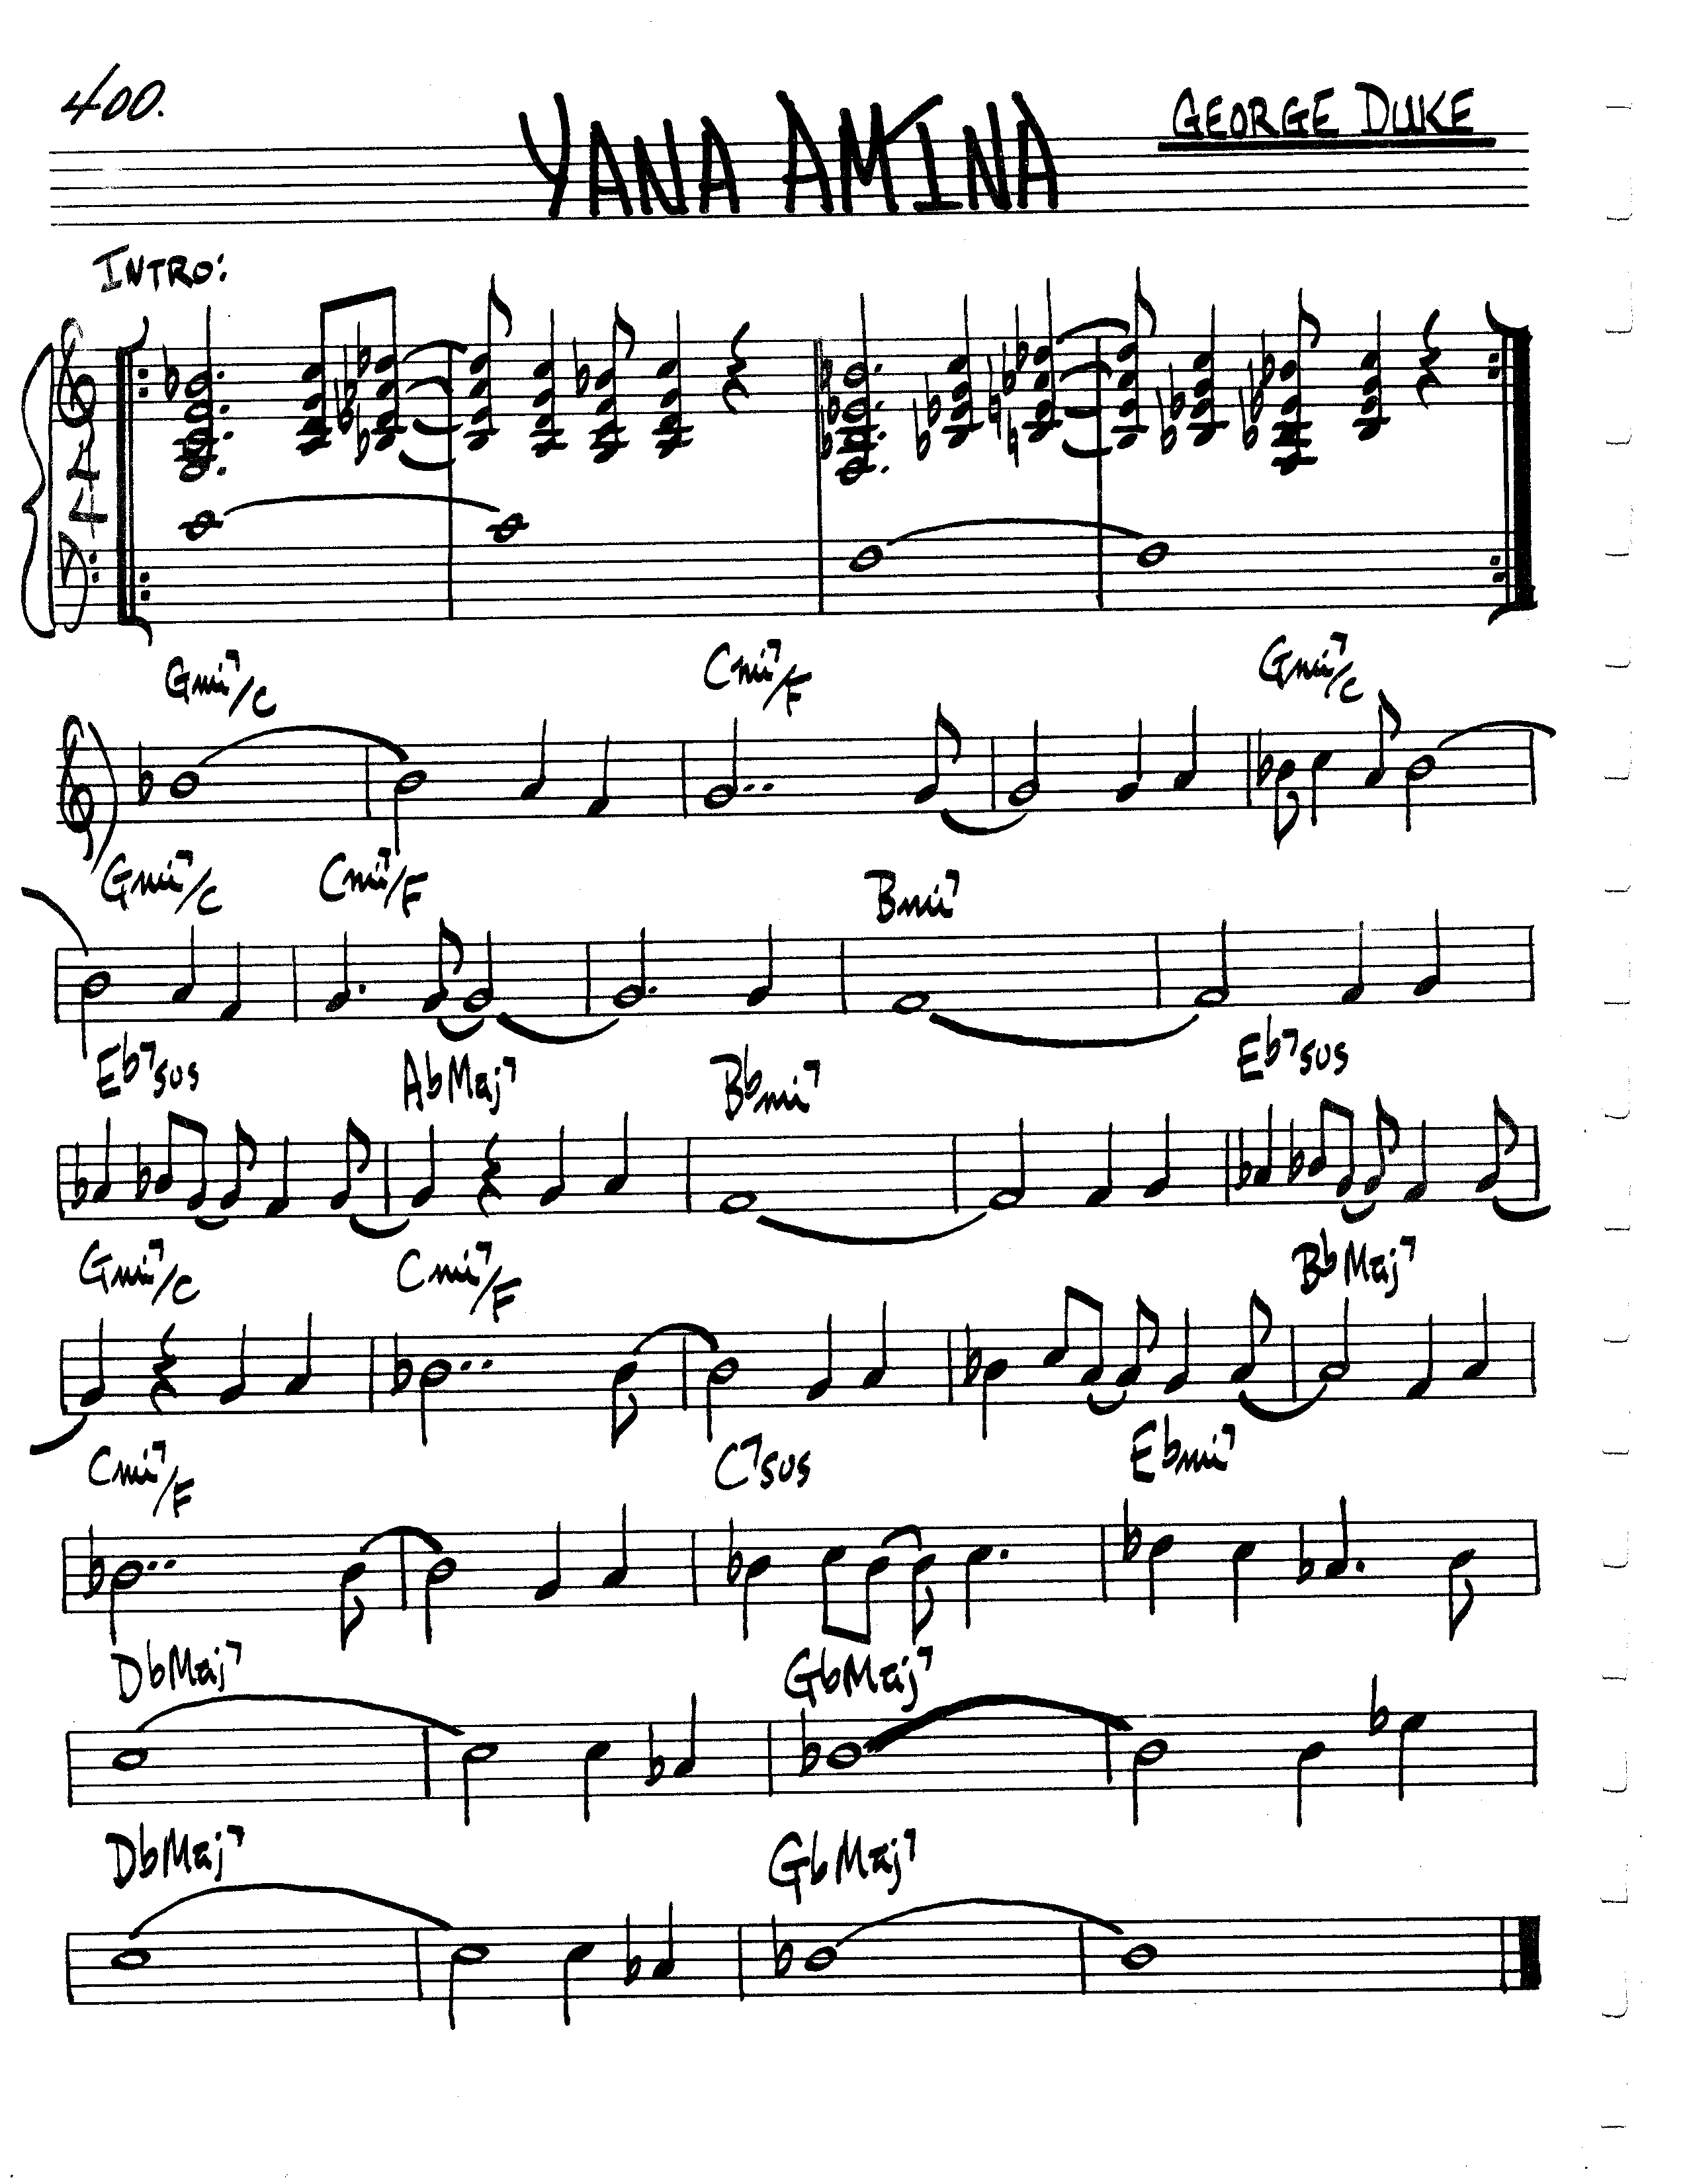 400.
YANA AMINA
GEORGE DUKE
INTRO:
4
4
Gmi7/C Cmi7/F Gmi7/C
Gmi7/C Cmi7/F Bmi7
Eb7sus AbMaj7 Bbmi7 Eb7sus
Gmi7/C Cmi7/F BbMaj7
Cmi7/F C7sus Ebmi7
DbMaj7 GbMaj7
DbMaj7 GbMaj7